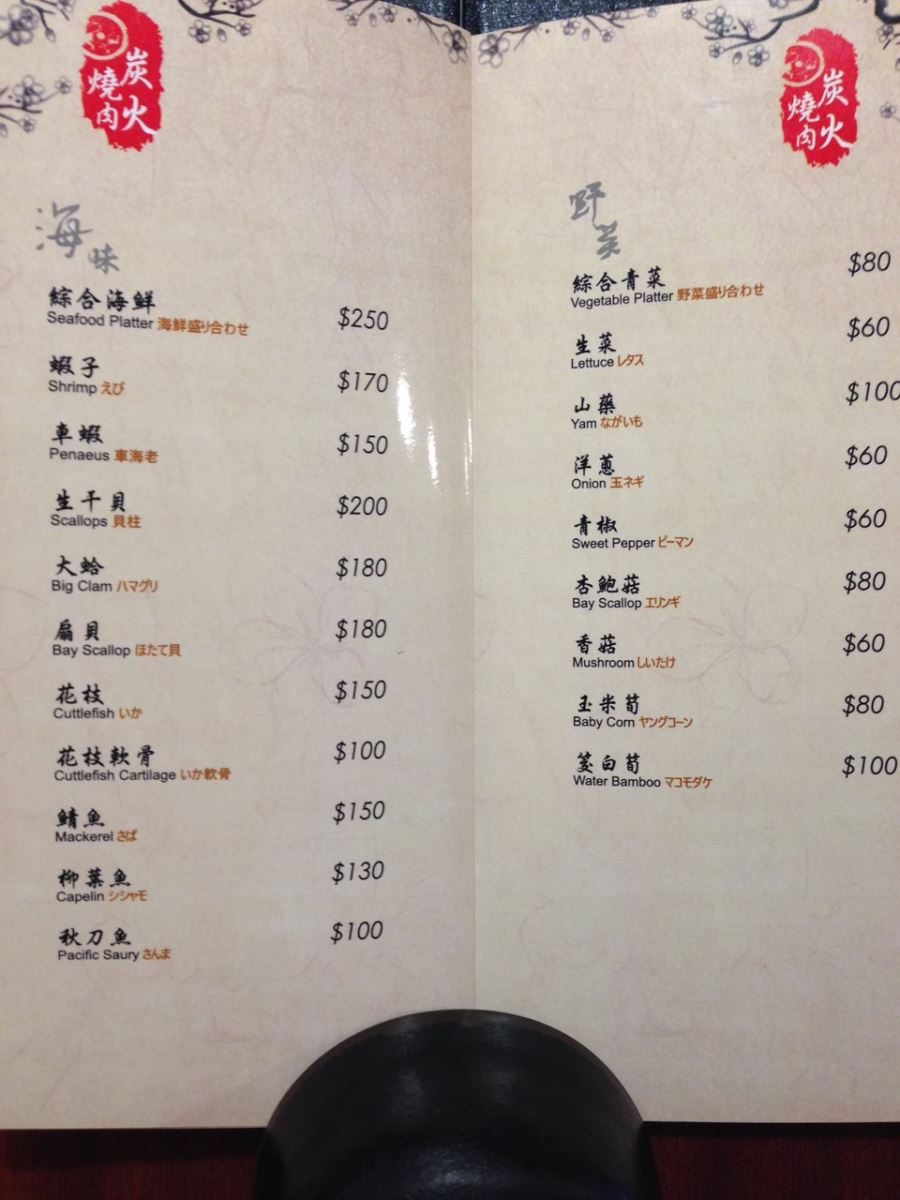 炭火
燒肉
海味
綜合海鮮
Seafood Platter 海鮮盛り合わせ
$250
蝦子
Shrimp えび
$170
車蝦
Penaeus 車海老
$150
生干貝
Scallops 貝柱
$200
大蛤
Big Clam ハマグリ
$180
扇貝
Bay Scallop ほたて貝
$180
花枝
Cuttlefish いか
$150
花枝軟骨
Cuttlefish Cartilage いか軟骨
$100
鯖魚
Mackerel さば
$150
柳葉魚
Capelin シシャモ
$130
秋刀魚
Pacific Saury さんま
$100
炭火
燒肉
野菜
綜合青菜
Vegetable Platter 野菜盛り合わせ
$80
生菜
Lettuce レタス
$60
山藥
Yam ながいも
$100
洋蔥
Onion 玉ネギ
$60
青椒
Sweet Pepper ピーマン
$60
杏鮑菇
Bay Scallop エリンギ
$80
香菇
Mushroom しいたけ
$60
玉米筍
Baby Corn ヤングコーン
$80
茭白筍
Water Bamboo マコモダケ
$100